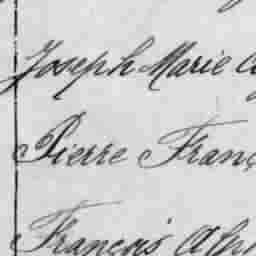 Joseph Marie
Pierre Franç
François Alph